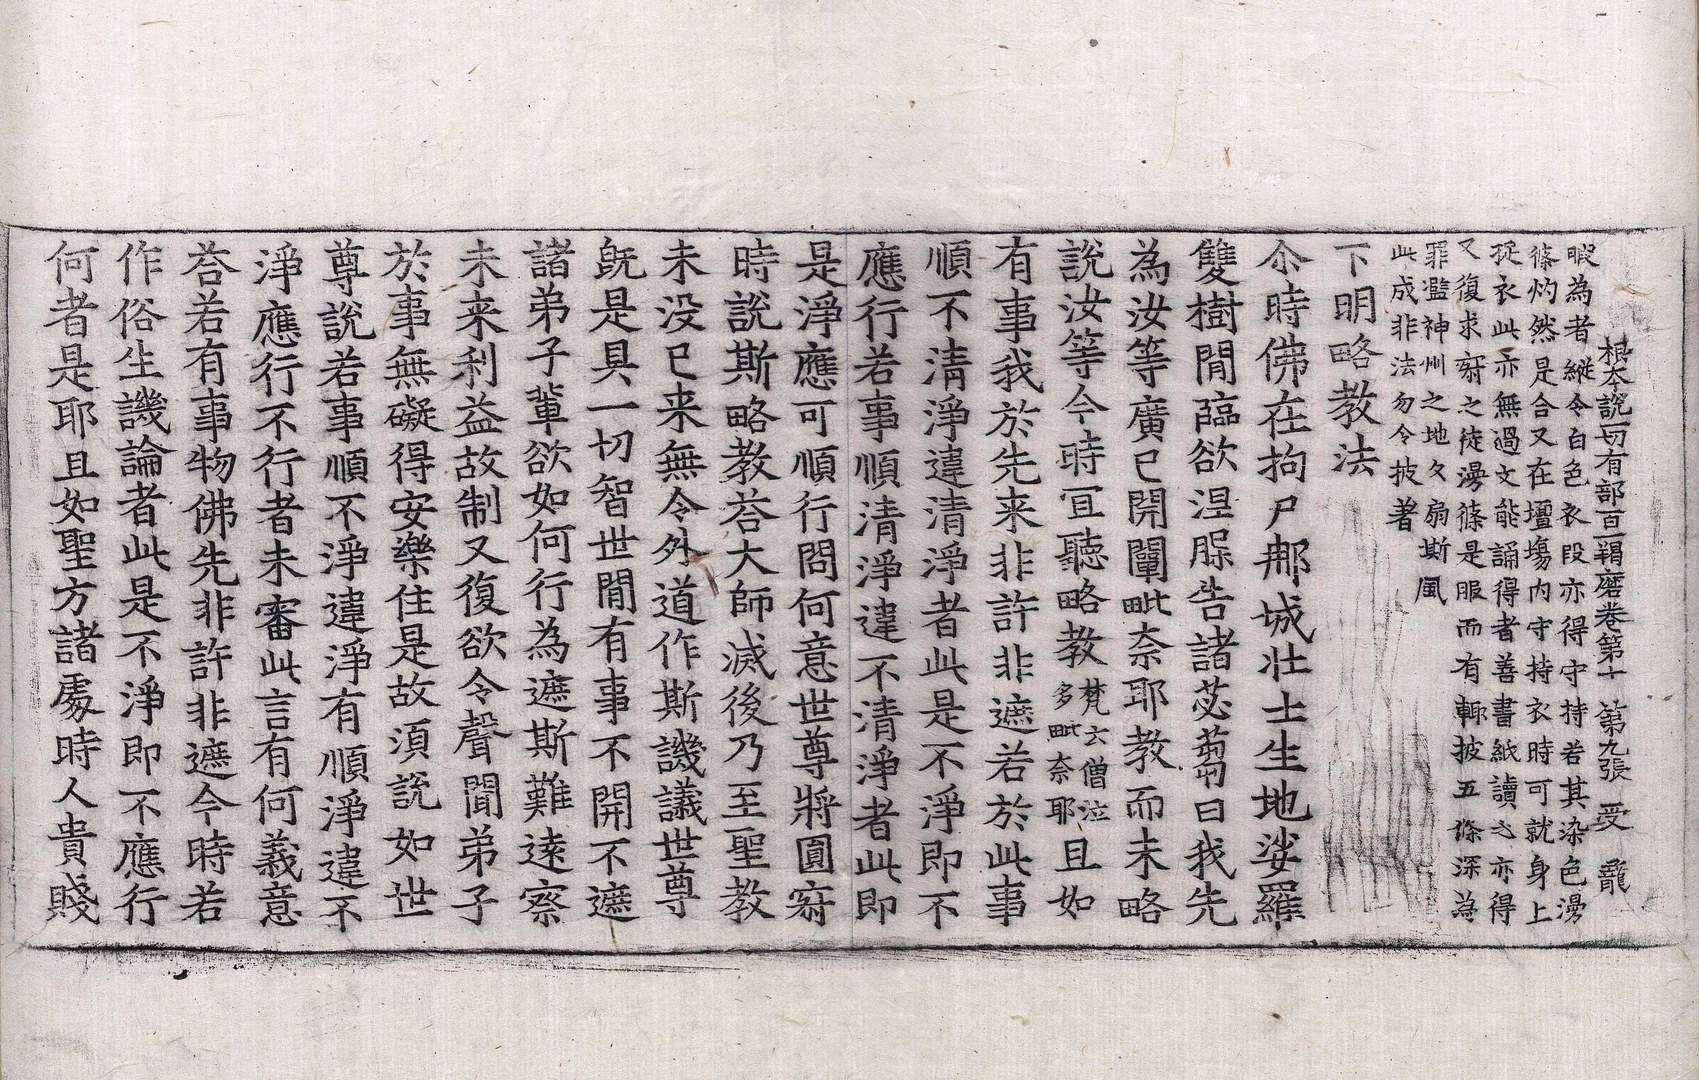 根本說一切有部百一羯磨卷第十 第九張 受 龍
暇為者縱令白色衣段亦得守持若其染色湯
篠灼然是合又在壇塲内守持衣時可就身上
捉衣此亦無過文能誦得者善書紙讀之亦得
又復求寂之徒湯篠是服而有輙披五條深為
罪濫神州之地久扇斯風
此成非法勿令披著
下明略教法
尒時佛在拘尸那城壯士生地娑羅
雙樹間臨欲涅槃告諸苾蒭曰我先
為汝等廣已開闡毗奈耶教而未略
說汝等今時宜聽略教梵云僧泣多毗奈耶且如
有事我於先来非許非遮若於此事
順不清淨違清淨者此是不淨即不
應行若事順清淨違不清淨者此即
是淨應可順行問何意世尊將圓寂
時說斯略教荅大師滅後乃至聖教
未没已来無令外道作斯譏議世尊
旣是具一切智世間有事不開不遮
諸弟子輩欲如何行為遮斯難逺察
未来利益故制又復欲令聲聞弟子
於事無礙得安樂住是故須說如世
尊說若事順不淨違淨有順淨違不
淨應行不行者未審此言有何義意
荅若有事物佛先非許非遮今時若
作俗生譏論者此是不淨即不應行
何者是耶且如聖方諸處時人貴賤